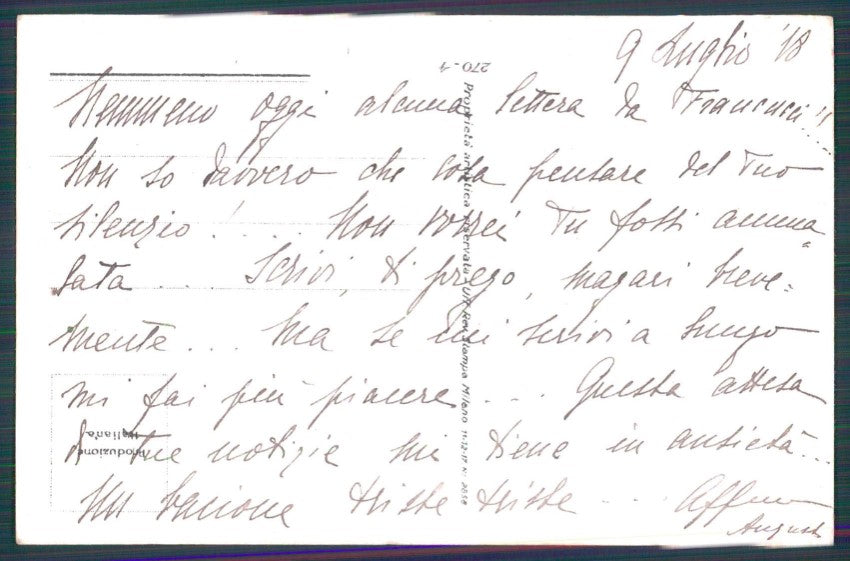 9 Luglio '18
Nemmeno oggi alcuna lettera da Francucci!!...
Non so davvero che cosa pensare del Tuo
silenzio!.... Non vorrei Tu fossi amma„
lata.... Scrivi, ti prego, magari breve=
mente... Ma se mi scrivi a lungo
mi fai più piacere.... Questa attesa
di tue notizie mi tiene in ansietà...
Un bacione triste triste... Affmo
Augusto
270-4
Proprietà artistica riservata - Uff. Rev. Stampa Milano 11-12-17 N.
Produzione
Italiana